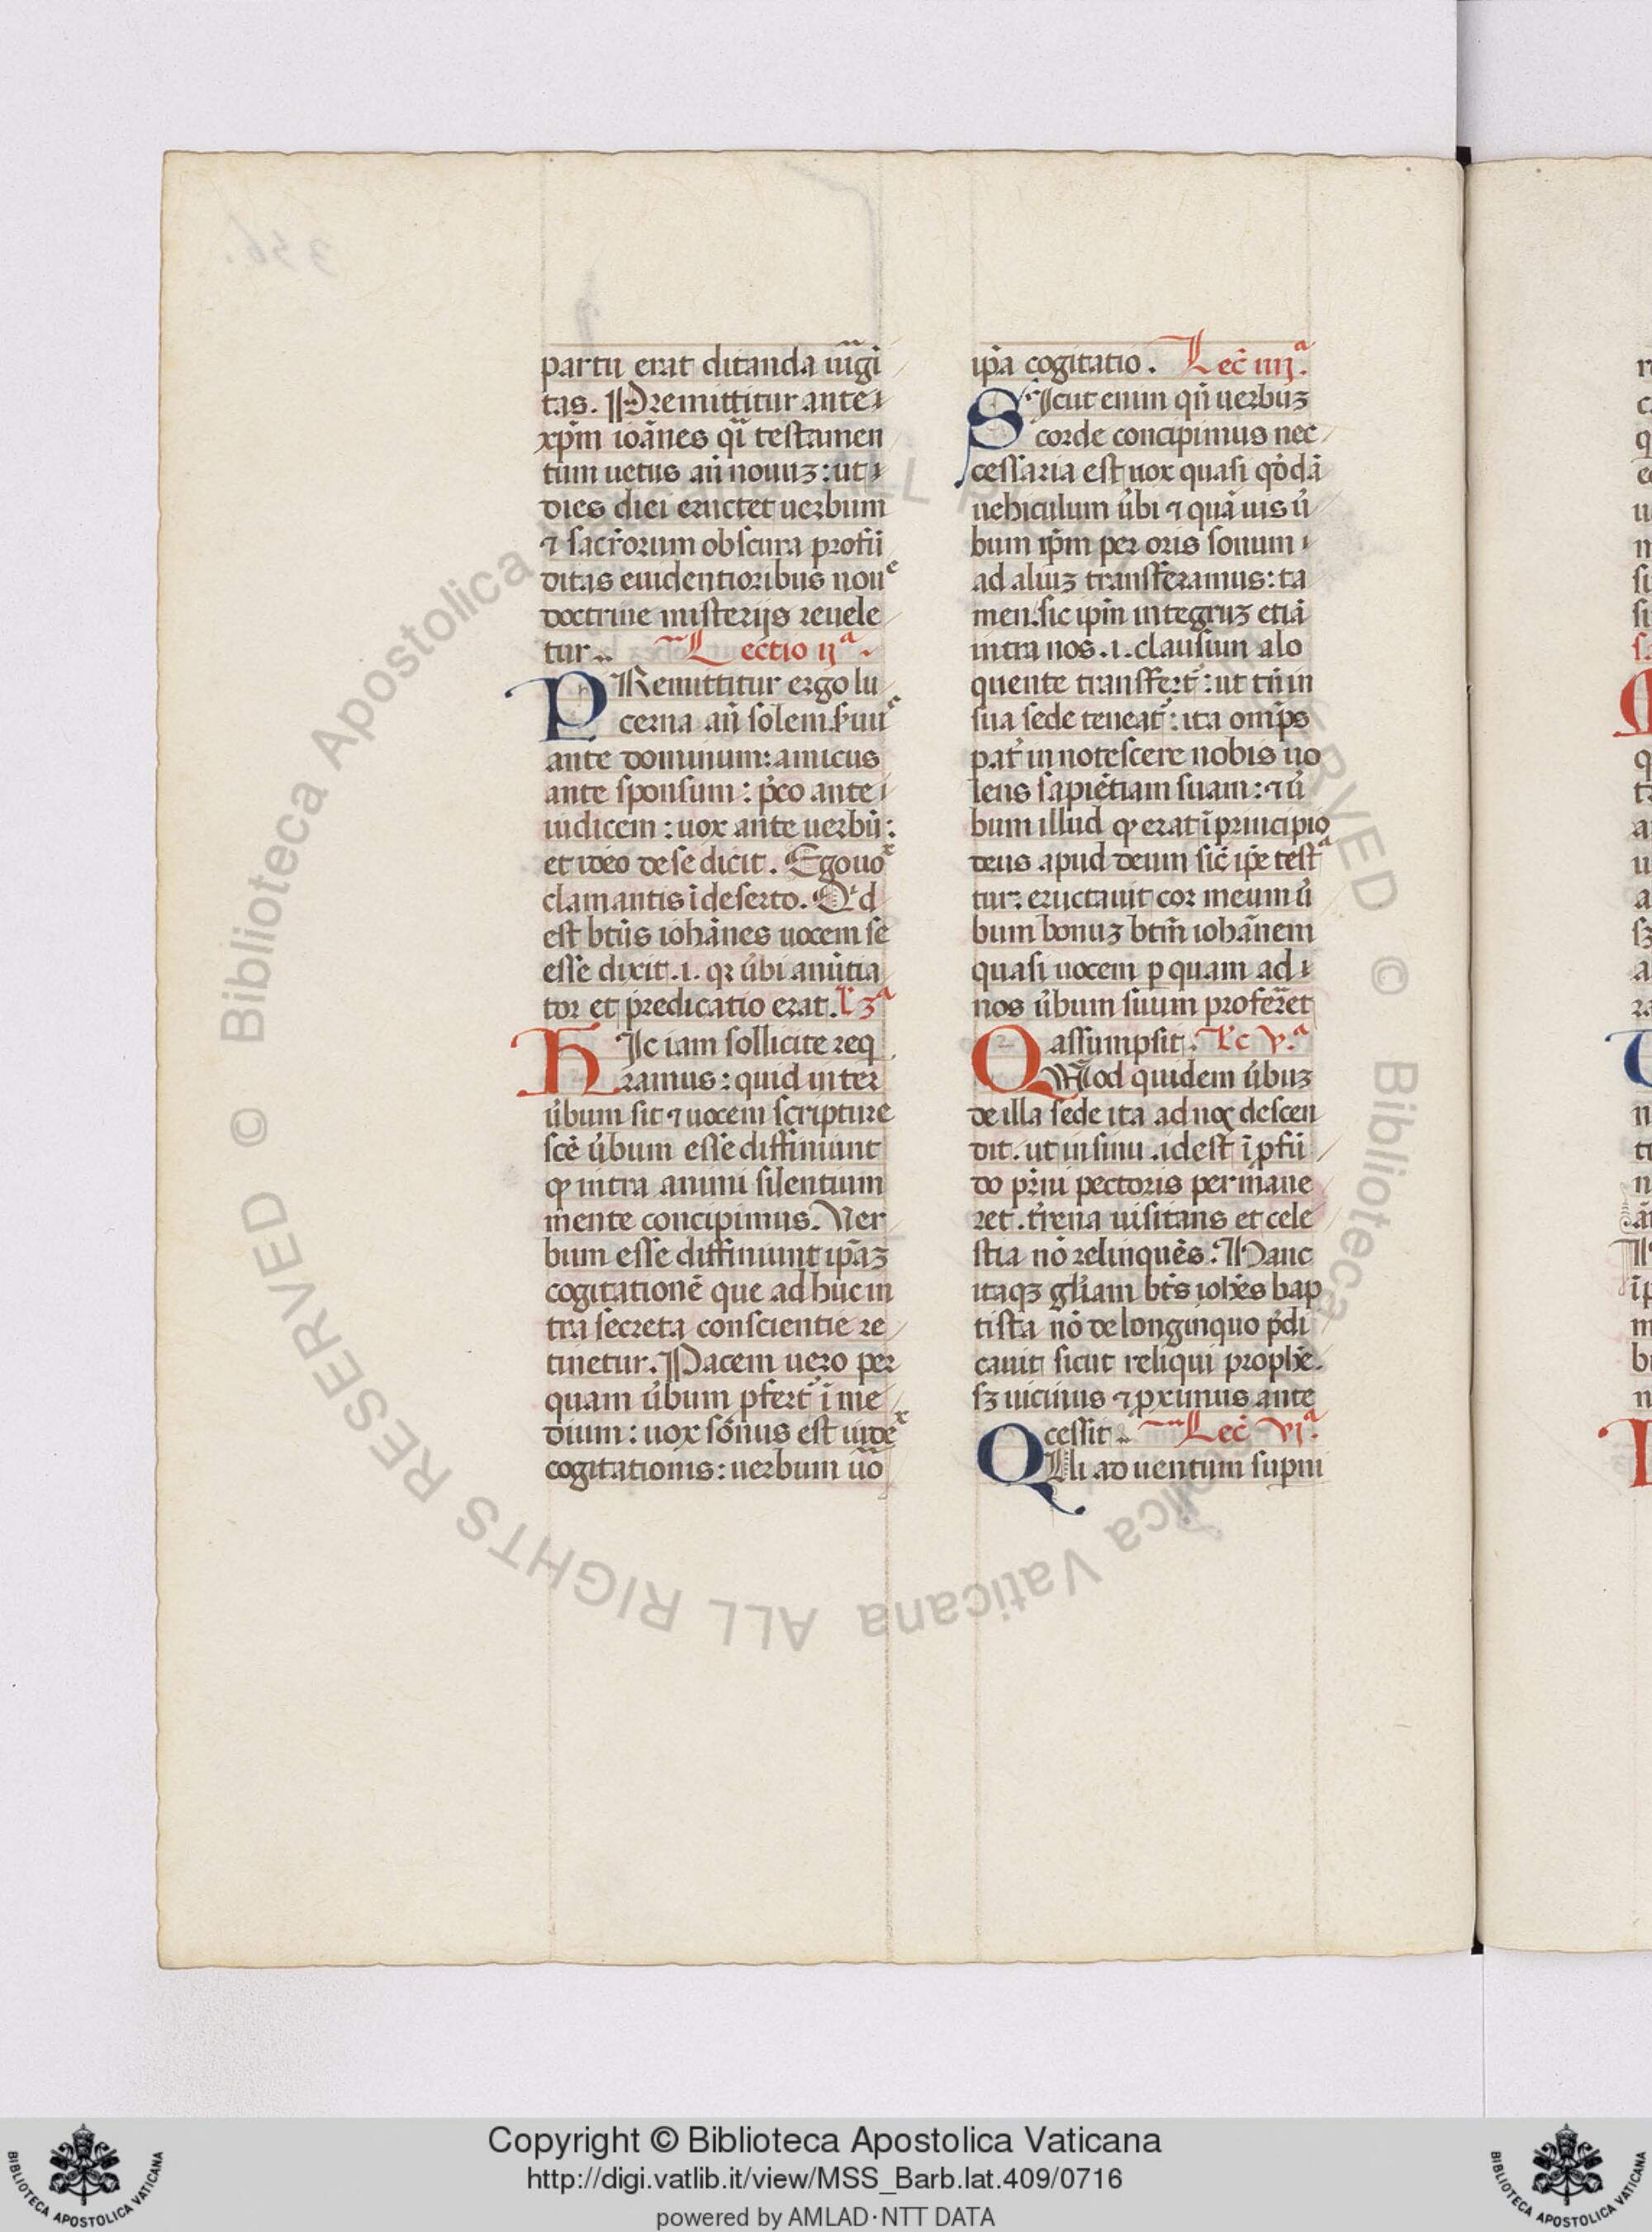 partu erat ditanda uı̄gi
tas. Premittitur ante
xp̄m ioānes qi testamen
tum uetus an̄ nouuꝫ: ut
dies diei eructet uerbum
⁊ sacr̄orum obscura profū
ditas euidentioribus nouᵉ
doctrine misterijs reuele
tur. Lectio ijᵃ.
PRemittitur ergo lu
cerna an̄ solem. suuᶜ
ante dominum: amicus
ante sponsum: p̄co ante
iudicem: uox ante uerbū:
et ideo de se dicit. Ego uoˣ
clamantis ī deserto. Qd
est bt̄us iohānes uocem se
esse dixit .i. qꝛ u̾bi anūtia
tor et predicatio erat. L̄ 3ᵃ
HIc iam sollicite req
ramus: quid inter
u̾bum sit ⁊ uocem scripture
sc̄e u̾bum esse diffiniunt
ꝙ intra animi silentium
mente concipimus. Ver
bum esse diffiniunt ip̄aꝫ
cogitationē que ad huc in
tra secreta conscientie re
tinetur. Vacem uero per
quam u̾bum pfert̾ ī me
dium: uox sonus est uideˣ
cogitationis: uerbum uo̾
ip̄a cogitatio. Lec̄ iiijᵃ.
SIcut enim qn̄ uerbuꝫ
corde concipimus nec
cessaria est uox quasi qōdā
uehiculum u̾bi ⁊ quā uis u̾
bum ip̄m per oris sonum
ad aliuꝫ transferamus: ta
men. sic ip̄m integruꝫ etiā
intra nos .i. clausum a lo
quente transfert̾: ut tn̄ in
sua sede teneat̾: ita omp̄s
pat̾ in notescere nobis uo
lens sapiētiam suam: ⁊ u̾
bum illud ꝙ erat ī principio
deus apud deum sic̄ ip̄e testᵃ
tur: eructauit cor meum u̾
bum bonuꝫ btm̄ iohānem
quasi uocem p quam ad
nos u̾bum suum proferret
assumpsit. Lc̄ v.ᵃ
QVod quidem u̾buꝫ
de illa sede ita ad noꝫ descen
dit. ut in sinu .idest ī pfū
do p̄rni pectoris permane
ret. t̾rena uisitans et cele
stia nō relinquēs. Hanc
itaqꝫ glī̄am bt̄s ioh̄es bap
tista nō de longinquo p̄di
cauit sicut reliqui proph̄e.
sꝫ uicinus ⁊ proximus ante
cessit. Lec̄ vjᵃ.
QUi ad uentum supni
Copyright © Biblioteca Apostolica Vaticana
http://digi.vatlib.it/view/MSS_Barb.lat.409/0716
powered by AMLAD·NTT DATA
BIBLIOTECA APOSTOLICA VATICANA
BIBLIOTECA APOSTOLICA VATICANA
© Biblioteca Apostolica Vaticana ALL RIGHTS RESERVED © Biblioteca Apostolica Vaticana ALL RIGHTS RESERVED